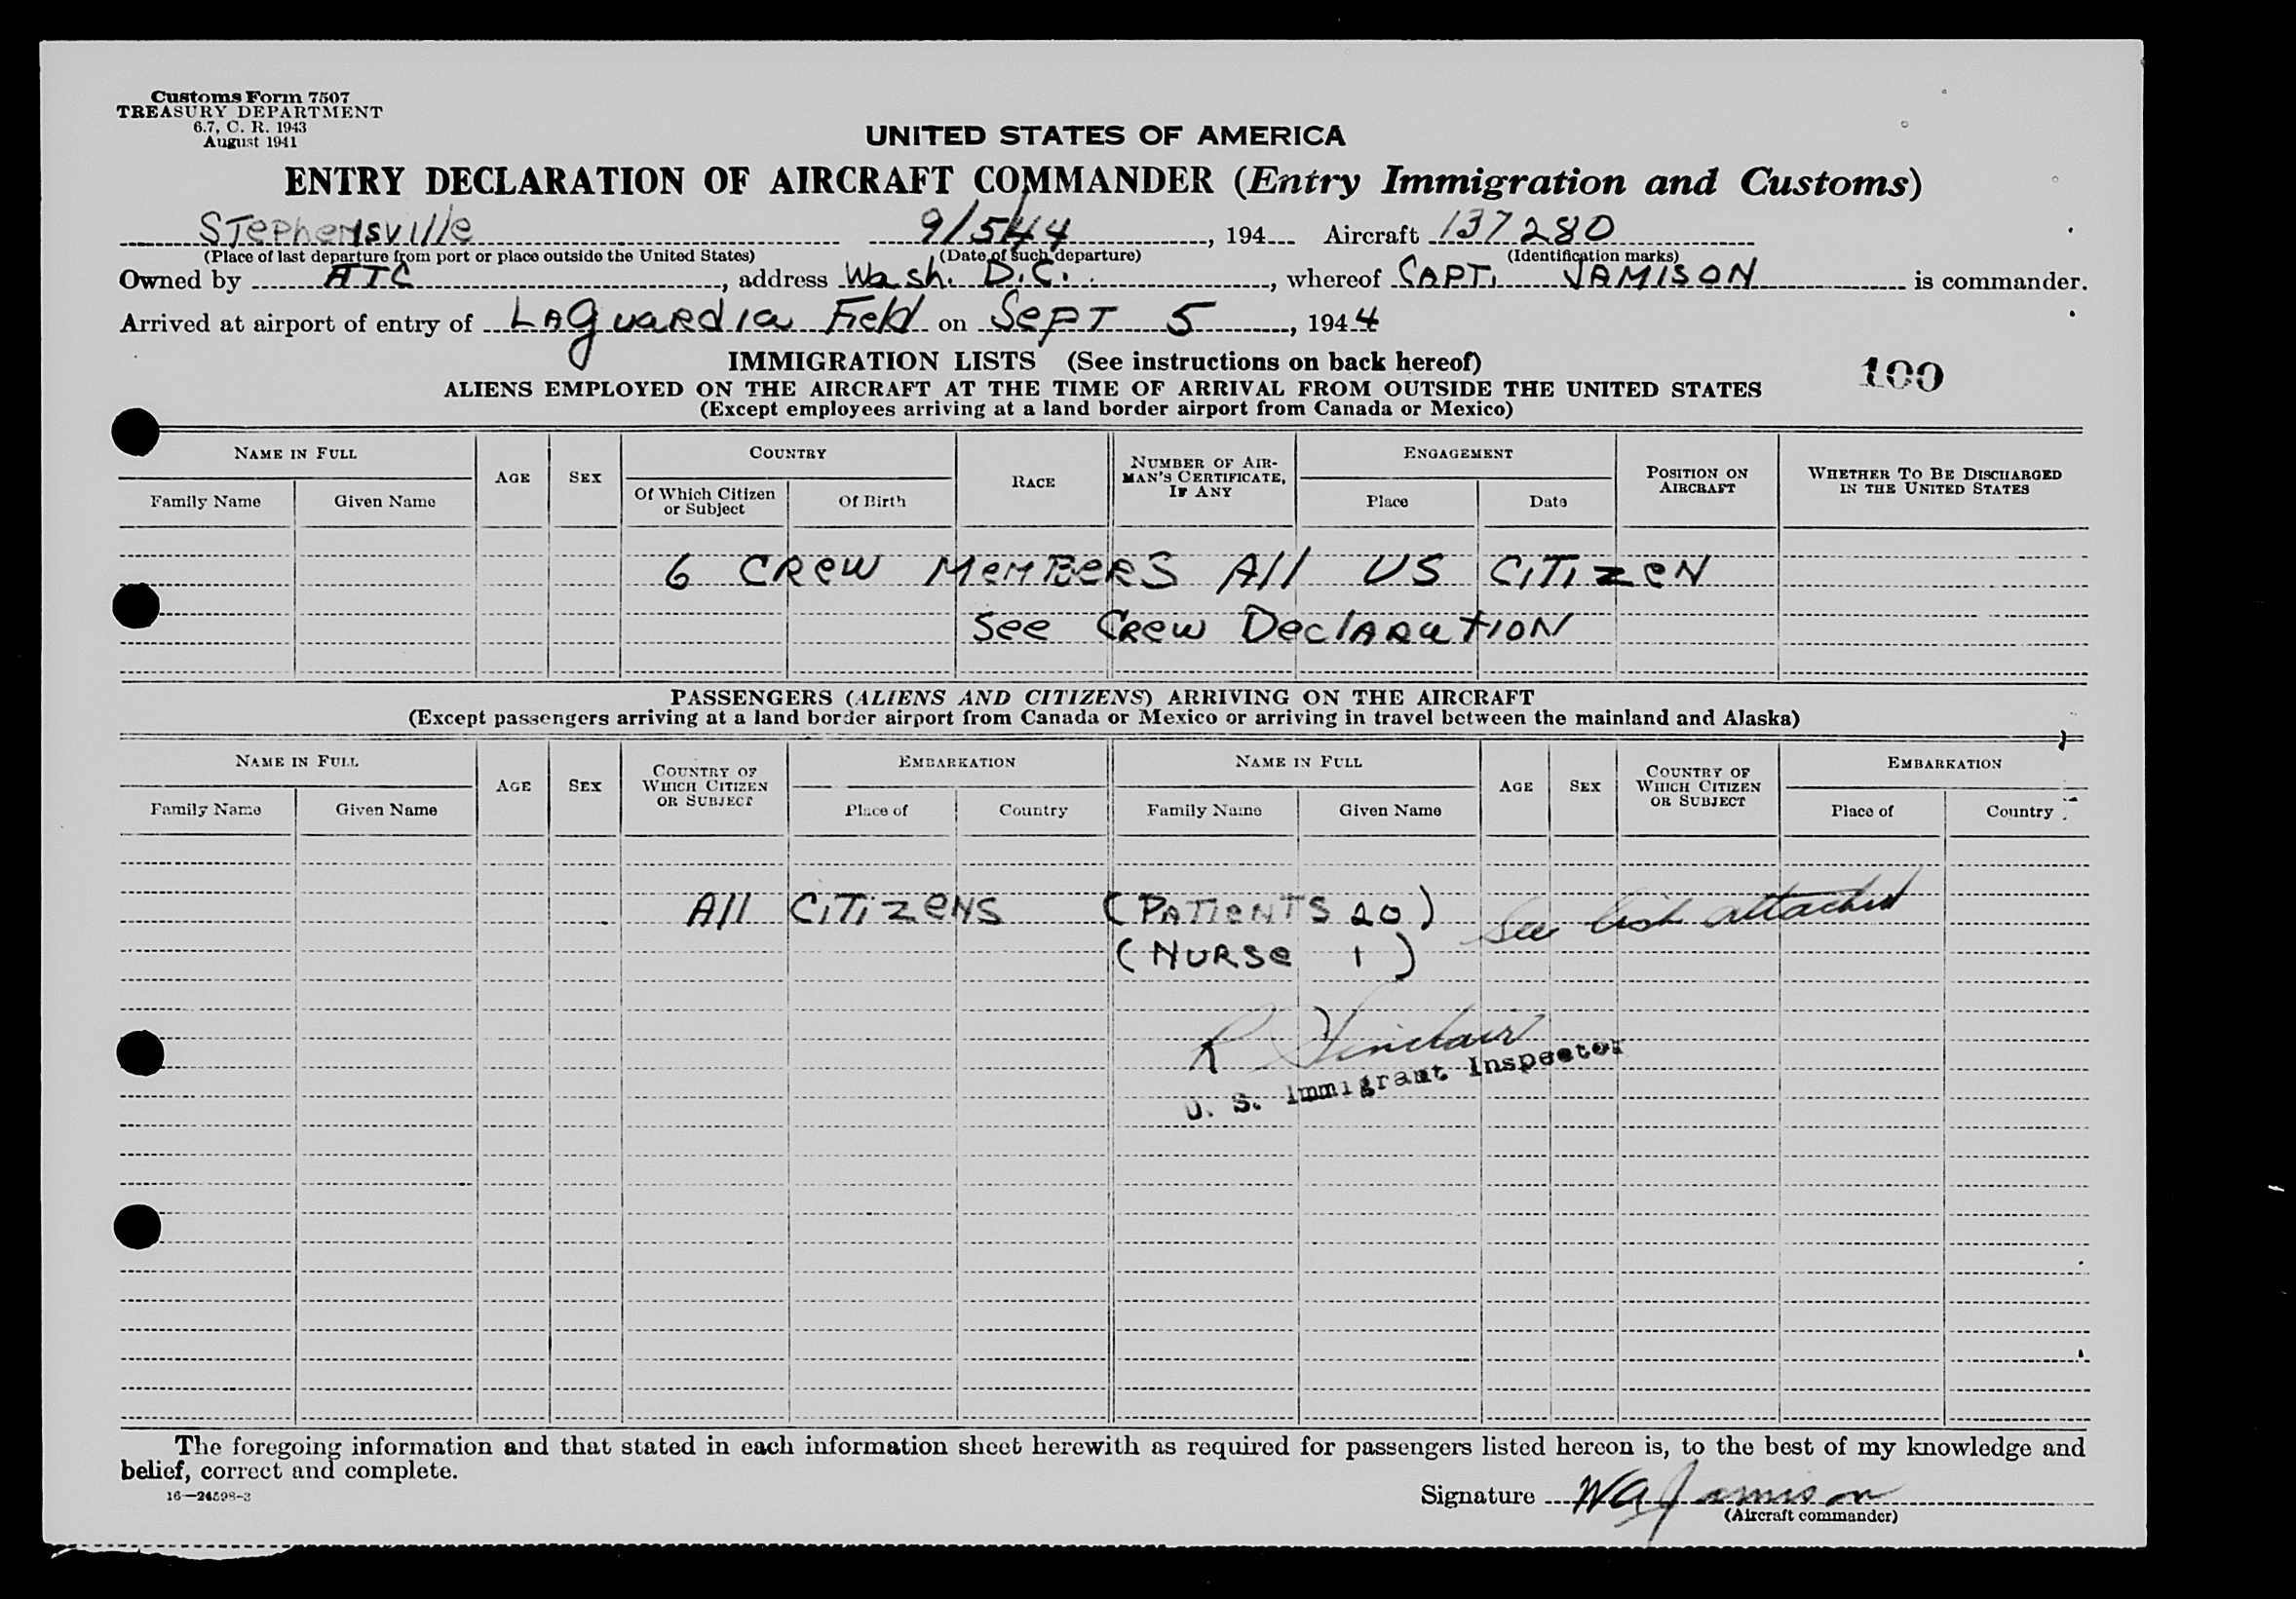 Customs Form 7507
TREASURY DEPARTMENT
6.7, C. R. 1943
August 1941
UNITED STATES OF AMERICA
ENTRY DECLARATION OF AIRCRAFT COMMANDER (Entry Immigration and Customs)
Stephensville 9/5/44, 194 Aircraft 137280
(Place of last departure from port or place outside the United States) (Date of such departure) (Identification marks)
Owned by ATC, address Wash. D.C., whereof CAPT. JAMISON is commander.
Arrived at airport of entry of LaGuardia Field on Sept 5, 1944
IMMIGRATION LISTS (See instructions on back hereof)
100
ALIENS EMPLOYED ON THE AIRCRAFT AT THE TIME OF ARRIVAL FROM OUTSIDE THE UNITED STATES
(Except employees arriving at a land border airport from Canada or Mexico)
NAME IN FULL AGE SEX COUNTRY RACE NUMBER OF AIRMAN'S CERTIFICATE, IF ANY ENGAGEMENT POSITION ON AIRCRAFT WHETHER TO BE DISCHARGED IN THE UNITED STATES
Family Name Given Name Of Which Citizen or Subject Of Birth Place Date
6 CREW MEMBERS All US CITIZEN
See Crew Declaration
PASSENGERS (ALIENS AND CITIZENS) ARRIVING ON THE AIRCRAFT
(Except passengers arriving at a land border airport from Canada or Mexico or arriving in travel between the mainland and Alaska)
NAME IN FULL AGE SEX COUNTRY OF WHICH CITIZEN OR SUBJECT EMBARKATION NAME IN FULL AGE SEX COUNTRY OF WHICH CITIZEN OR SUBJECT EMBARKATION
Family Name Given Name Place of Country Family Name Given Name Place of Country
All CITIZENS (PATIENTS 20) See list attached
(NURSE 1)
R Sinclair
U. S. Immigrant Inspector
The foregoing information and that stated in each information sheet herewith as required for passengers listed hereon is, to the best of my knowledge and
belief, correct and complete.
16—24598-3
Signature WA Jamison
(Aircraft commander)